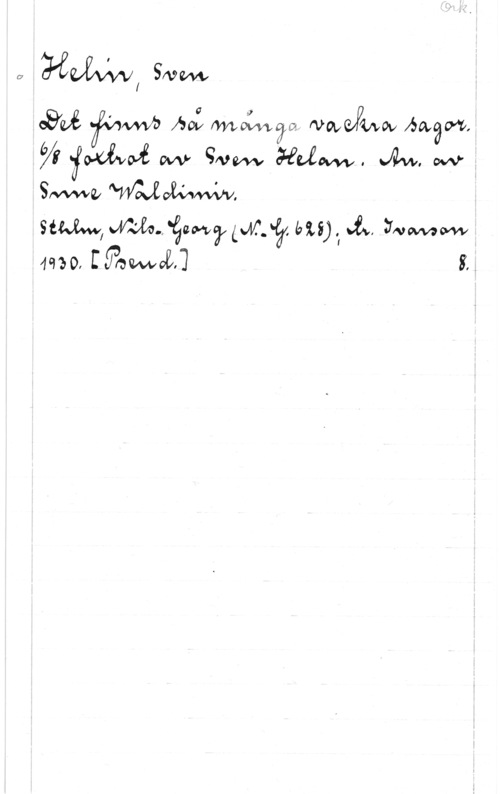 Ork.
Helin, Sven
Det finns så många vackra sagor.
6/8 foxtrot av Sven Helan. Arr. av
Sune Waldimir.
Sthlm, Nils-Georg (N.-G. 628); tr. Ivarson
1930. [Pseud.] 8.